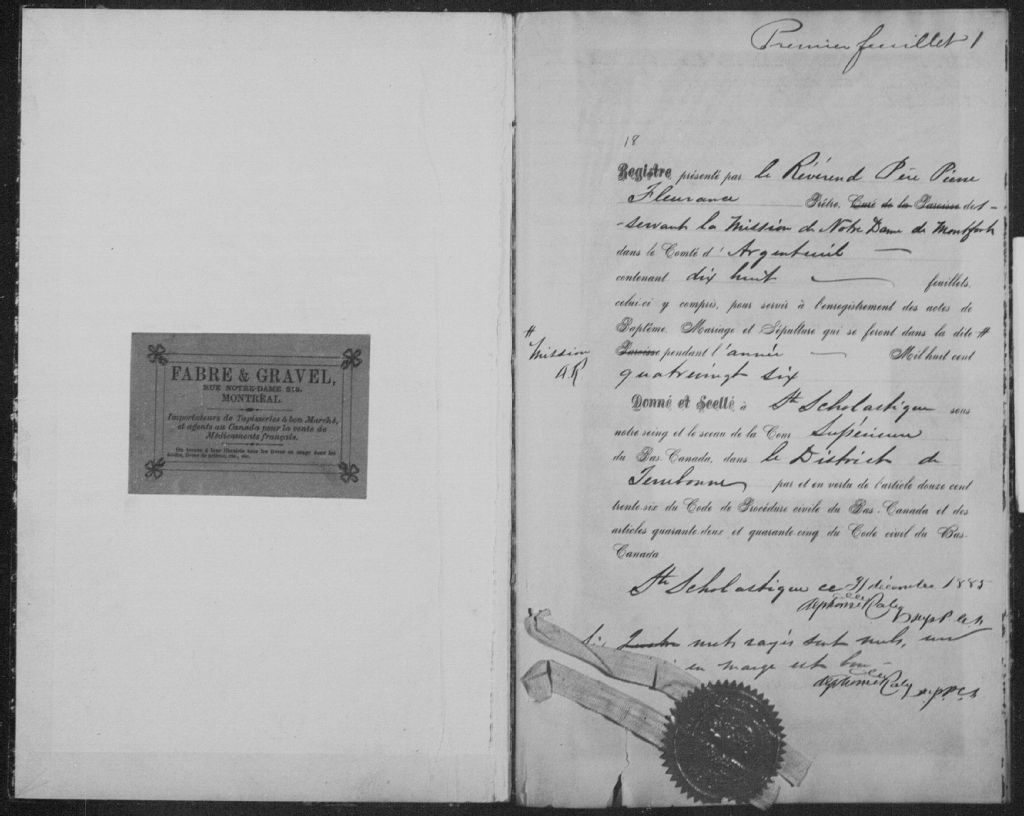 FABRE & GRAVEL,
RUE NOTRE-DAME 219.
MONTRÉAL.
Importateurs de Tapisseries à bon Marché,
et agents au Canada pour la vente de
Médicaments français.
On trouve à leur librairie tous les livres en usage dans les
Premier feuillet 1
18
Registre présenté par le Révérend Père Pierre
Fleurance Prêtre, Curé de la Paroisse des-
-servant la Mission de Notre Dame de Montfort
dans le Comté d'Argenteuil
contenant dix huit feuillets,
celui-ci y compris, pour servir à l'enregistrement des actes de
Baptême, Mariage et Sépulture qui se feront dans la dite #
# Mission
Paroisse pendant l'année Mil huit cent
quatrevingt six
Donné et Scellé à Ste Scholastique sous
notre seing et le sceau de la Cour Supérieure
du Bas-Canada, dans le District de
Terrebonne par et en vertu de l'article douze cent
trente-six du Code de Procédure civile du Bas-Canada et des
articles quarante-deux et quarante-cinq du Code civil du Bas-
Canada
Ste Scholastique ce 31 décembre 1885
mots rayés sont nuls, un
en marge est bon